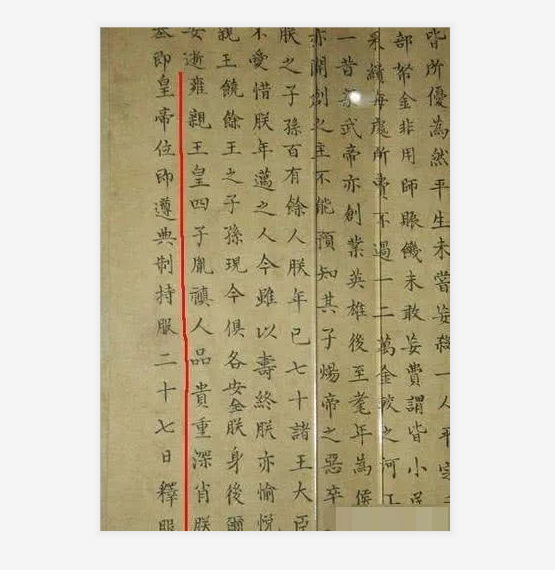 皆所優為然平生未嘗妄殺一人平定
部帑金非用師賑饑未敢妄費謂皆小民
采繢每處所費不過一二萬金較之河工
一昔梁武帝亦創業英雄後至耄年為侯
亦開創之主不能預知其子煬帝之惡卒
朕之子孫百有餘人朕年已七十諸王大臣
不愛惜朕年邁之人今雖以壽終朕亦愉悅
親王饒餘王之子孫現今俱各安全朕身後爾
安逝雍親王皇四子胤禛人品貴重深肖朕
基即皇帝位即遵典制持服二十七日釋服